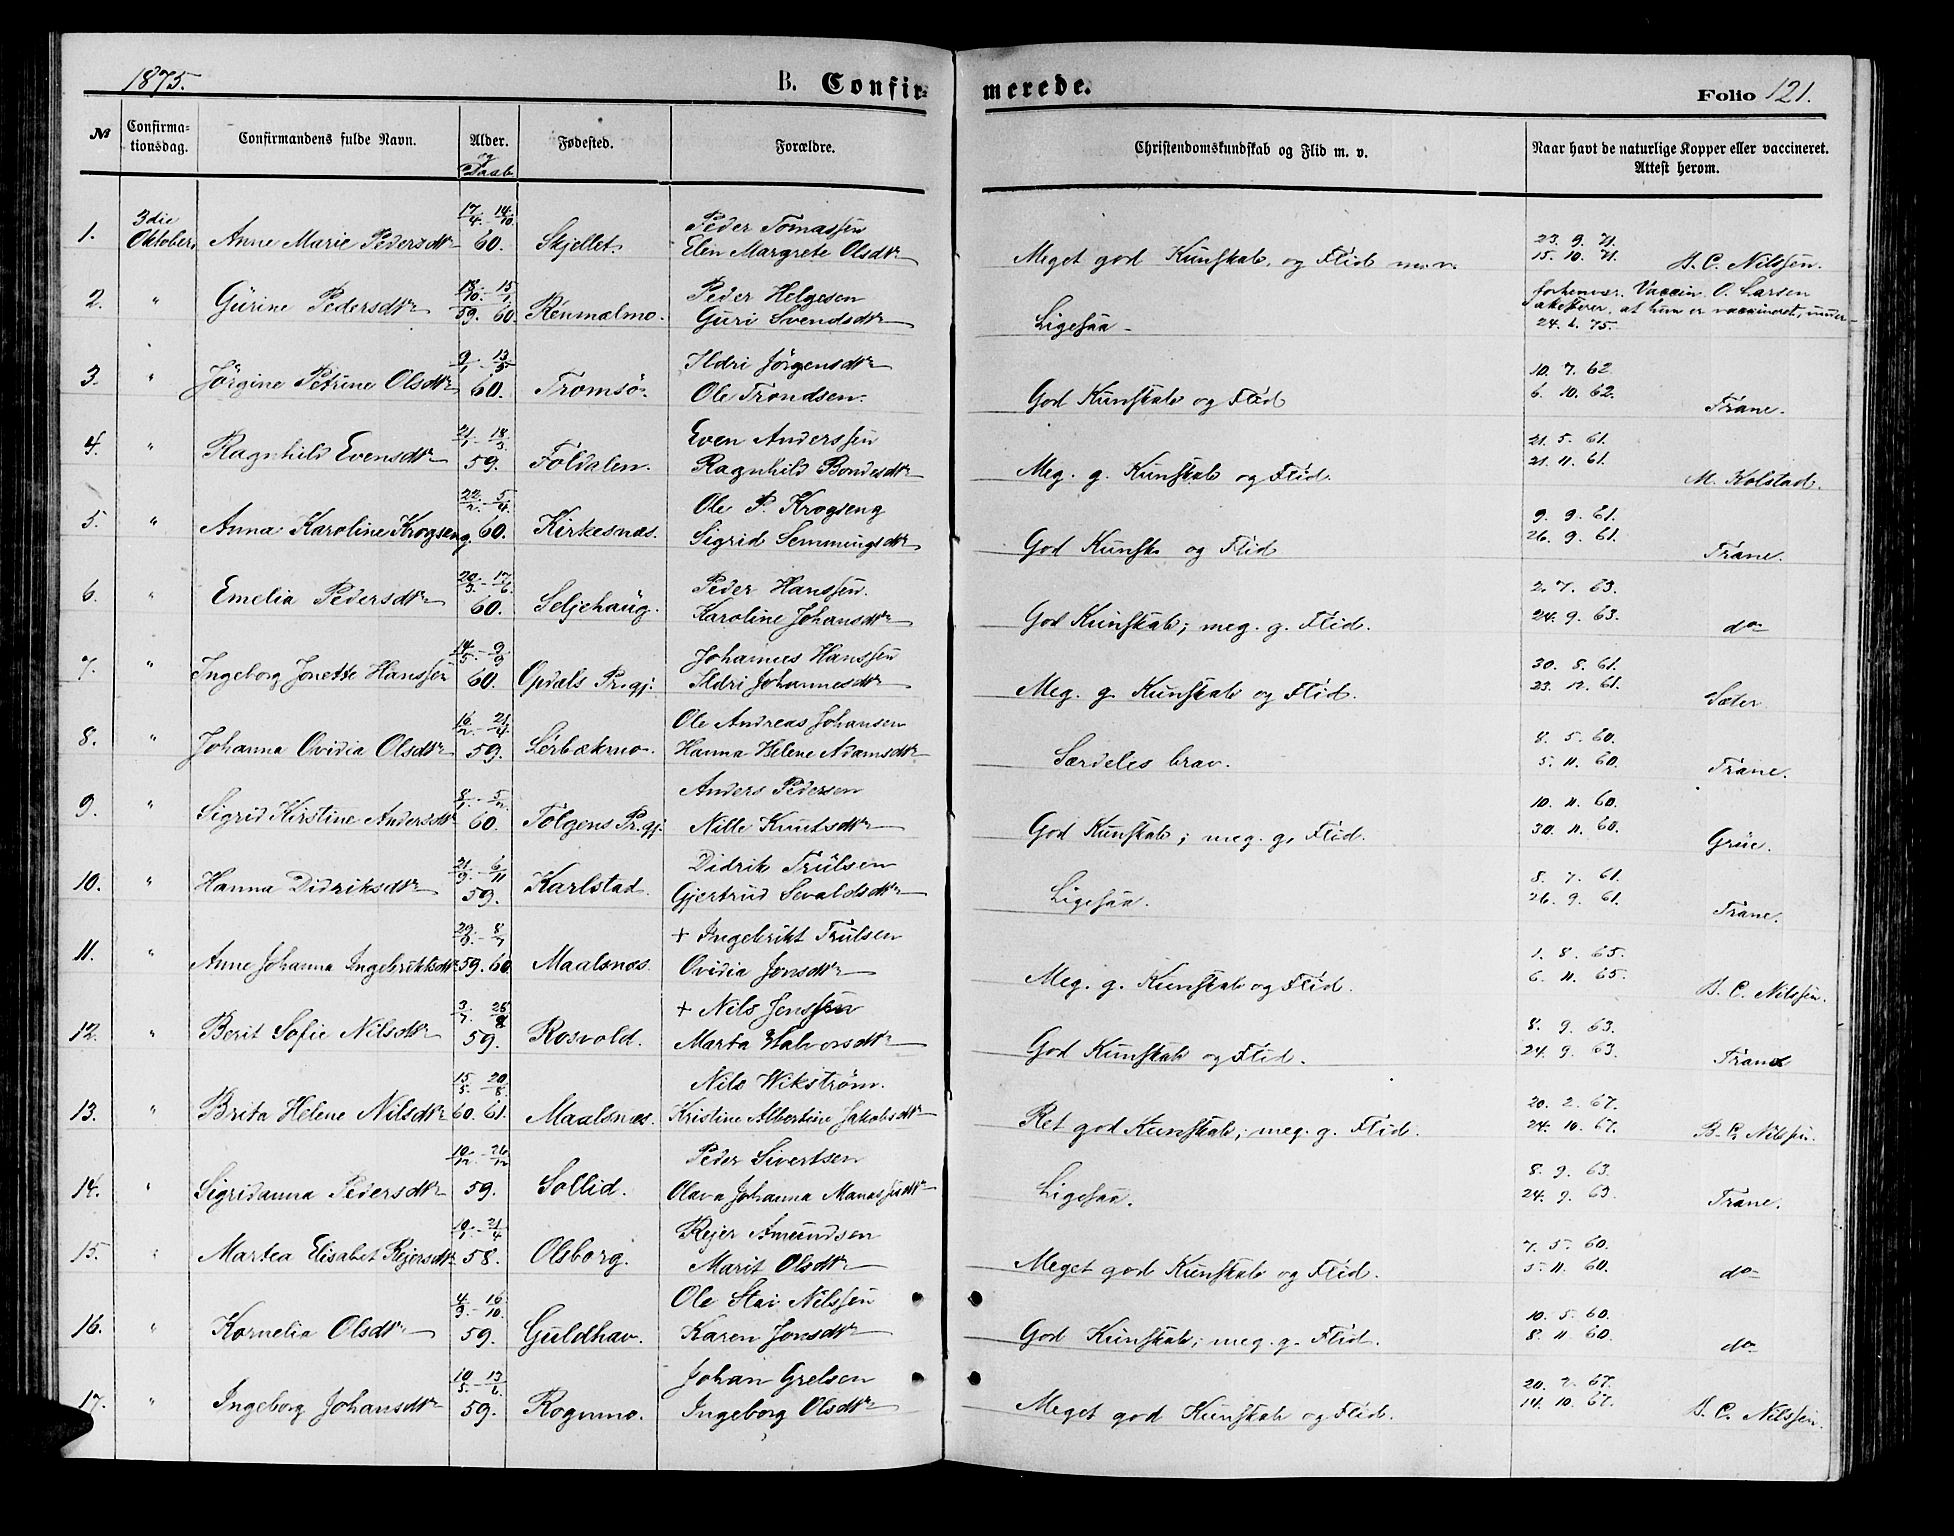 1875.
B. Confir-
merede.
Folio 121.
№
Confirma-
tionsdag.
Confirmandens fulde Navn.
Alder.
og
Daab
Fødested.
Forældre.
Christendomskundskab og Flid m. v.
Naar havt de naturlige Kopper eller vaccineret.
Attest herom.
3die 17/4 - 14/10 Peder Tomassen 23. 9. 71.
1. Oktober Anne Marie Pedersdtr 60. Skjellet. Elin Margrete Olsdtr Meget god Kunskab, og Flid m.v. 15. 10. 71. B. C. Nilssen.
13/10 - 15/1 Peder Helgesen forhenvær. Vaccin. O. Larsen
2. " Gurine Pedersdtr 59. 60. Renmælmo. Guri Svendsdtr Ligesaa at hun er vaccineret, under
24. 6. 75.
9/1 - 13/5 Ildri Jörgensdtr 10. 7. 62.
3. " Jörgine Petrine Olsdtr 60. Tromsö. Ole Trondsen. God Kunskab og Flid 6. 10. 62. Trane.
21/1 - 18/3 Even Anderssen 21. 5. 61.
4. " Ragnhild Evensdtr 59. Foldalen. Ragnhild Bondesdtr Meg. g. Kunskab og Flid. 21. 11. 61. M. Kolstad.
22/2 - 5/4 Ole P. Krogseng 9. 9. 61.
5. " Anna Karoline Krogseng 60. Kirkesnæs. Sigrid Semmingsdtr God Kunsk. og Flid 26. 9. 61. Trane.
20/3 - 17/6 Peder Hanssen. 2. 7. 63.
6. " Emelia Pedersdtr 60. Seljehaug. Karoline Johansdtr God Kunskab; meg. g. Flid. 24. 9. 63. do
14/5 - 9/9 Johannes Hanssen 30. 8. 61.
7. " Ingeborg Jonette Hanssen 60. Opdals Prgj. Ildri Johannesdtr Meg. g. Kunskab og Flid. 23. 12. 61. Sæter.
16/2 - 21/4 Ole Andreas Johansen 8. 5. 60.
8. " Johanna Ovidia Olsdtr 59. Lerbækmo. Hanna Helene Adamsdtr Særdeles brav. 5. 11. 60. Trane.
8/1 - 5/2 Anders Pedersen 10. 11. 60.
9. " Sigrid Kirstine Andersdtr 60. Tolgens Prgj. Nille Knutsdtr God Kunskab; meg. g. Flid. 30. 11. 60. Grüe.
21/9 - 6/11 Didrik Trulsen 8. 7. 61.
10. " Hanna Didriksdtr 59. Karlstad. Gjertrud Sevaldsdtr Ligesaa. 26. 9. 61. Trane.
+ Ingebrikt Trulsen 1. 8. 65.
11. " Anne Johanna Ingebriktsdtr 59. 60. Maalsnæs. Ovidia Jonsdtr Meg. g. Kunskab og Flid. 6. 11. 65. B. C. Nilssen.
3/7 - 28/8 + Nils Jenssen 8. 9. 63.
12. " Berit Sofie Nilsdtr 59. Rosvold. Marta Halvorsdtr God Kunskab og Flid. 24. 9. 63. Trane
15/5 - 20/8 Nils Wikström. 20. 2. 67.
13. " Brita Helene Nilsdtr 60. 61. Maalsnæs. Kristine Albertine Jakobsdtr Ret god Kunskab; meg. g. Flid. 24. 10. 67. B. C. Nilssen.
10/12 - 26/12 Peder Sivertsen 8. 9. 63.
14. " Sigridanna Pedersdtr 59. Sollid. Olava Johanna Manassesdtr Ligesaa. 24. 9. 63. Trane.
10/1 - 21/4 Rejer Amundsen 7. 5. 60.
15. " Martea Elisabet Rejersdtr 58. Olsborg. Marit Olsdtr Meget god Kunskab og Flid. 5. 11. 60. do
4/9 - 16/10 Ole Stai Nilssen 10. 5. 60.
16. " Kornelia Olsdtr 59. Guldhav. Karen Jonsdtr God Kunskab; meg. g. Flid. 8. 11. 60. do
10/5 - 13/6 Johan Grelsen 20. 2. 67.
17. " Ingeborg Johansdtr 59. Rognmo. Ingeborg Olsdtr Meget god Kunskab og Flid. 14. 10. 67. B. C. Nilssen.